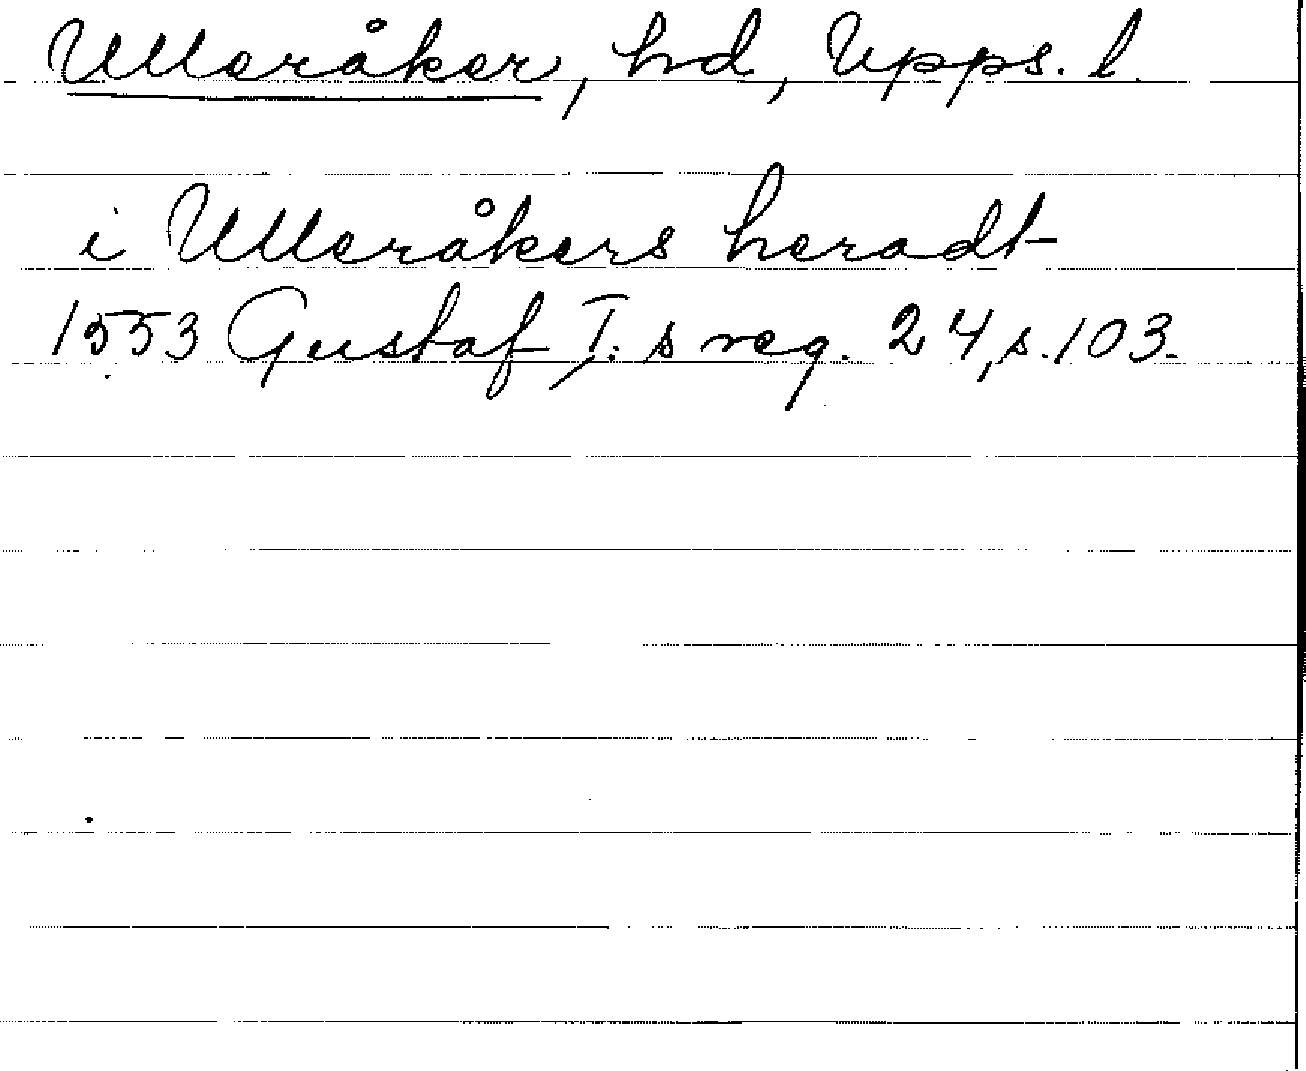 Ulleråker, hd, Upps. l.
i Ulleråkers heradt
1553 Gustaf I:s reg. 24, s. 103.